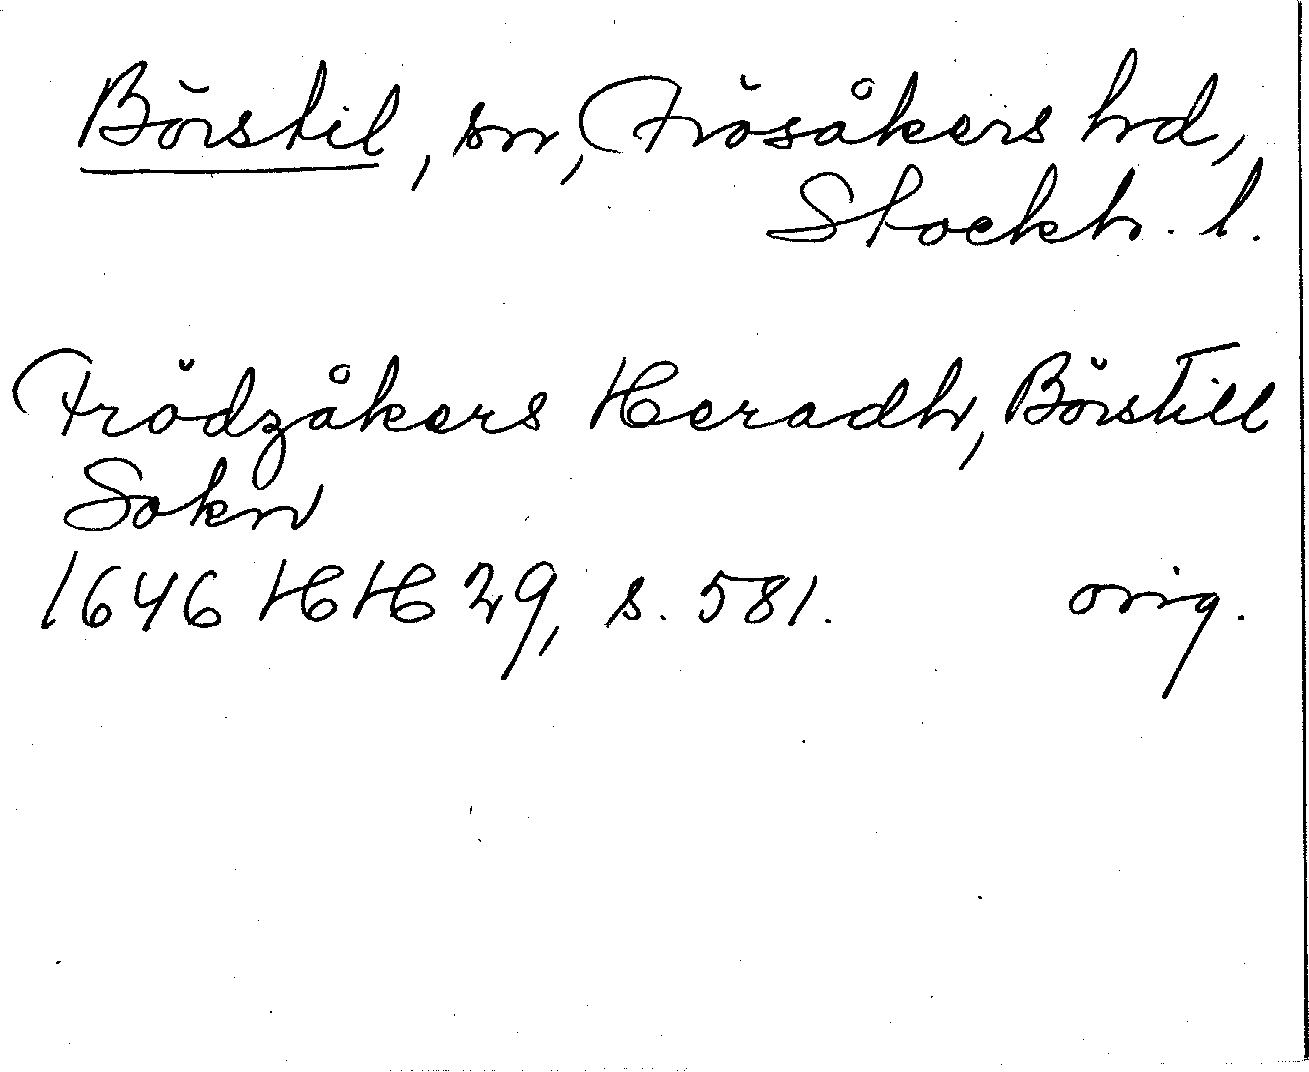 Börstil, sn, Frösåkers hd,
Stockh. l.
Frödzåkers Heradh, Börstill
Sokn
1646 HH 29, s. 581. orig.